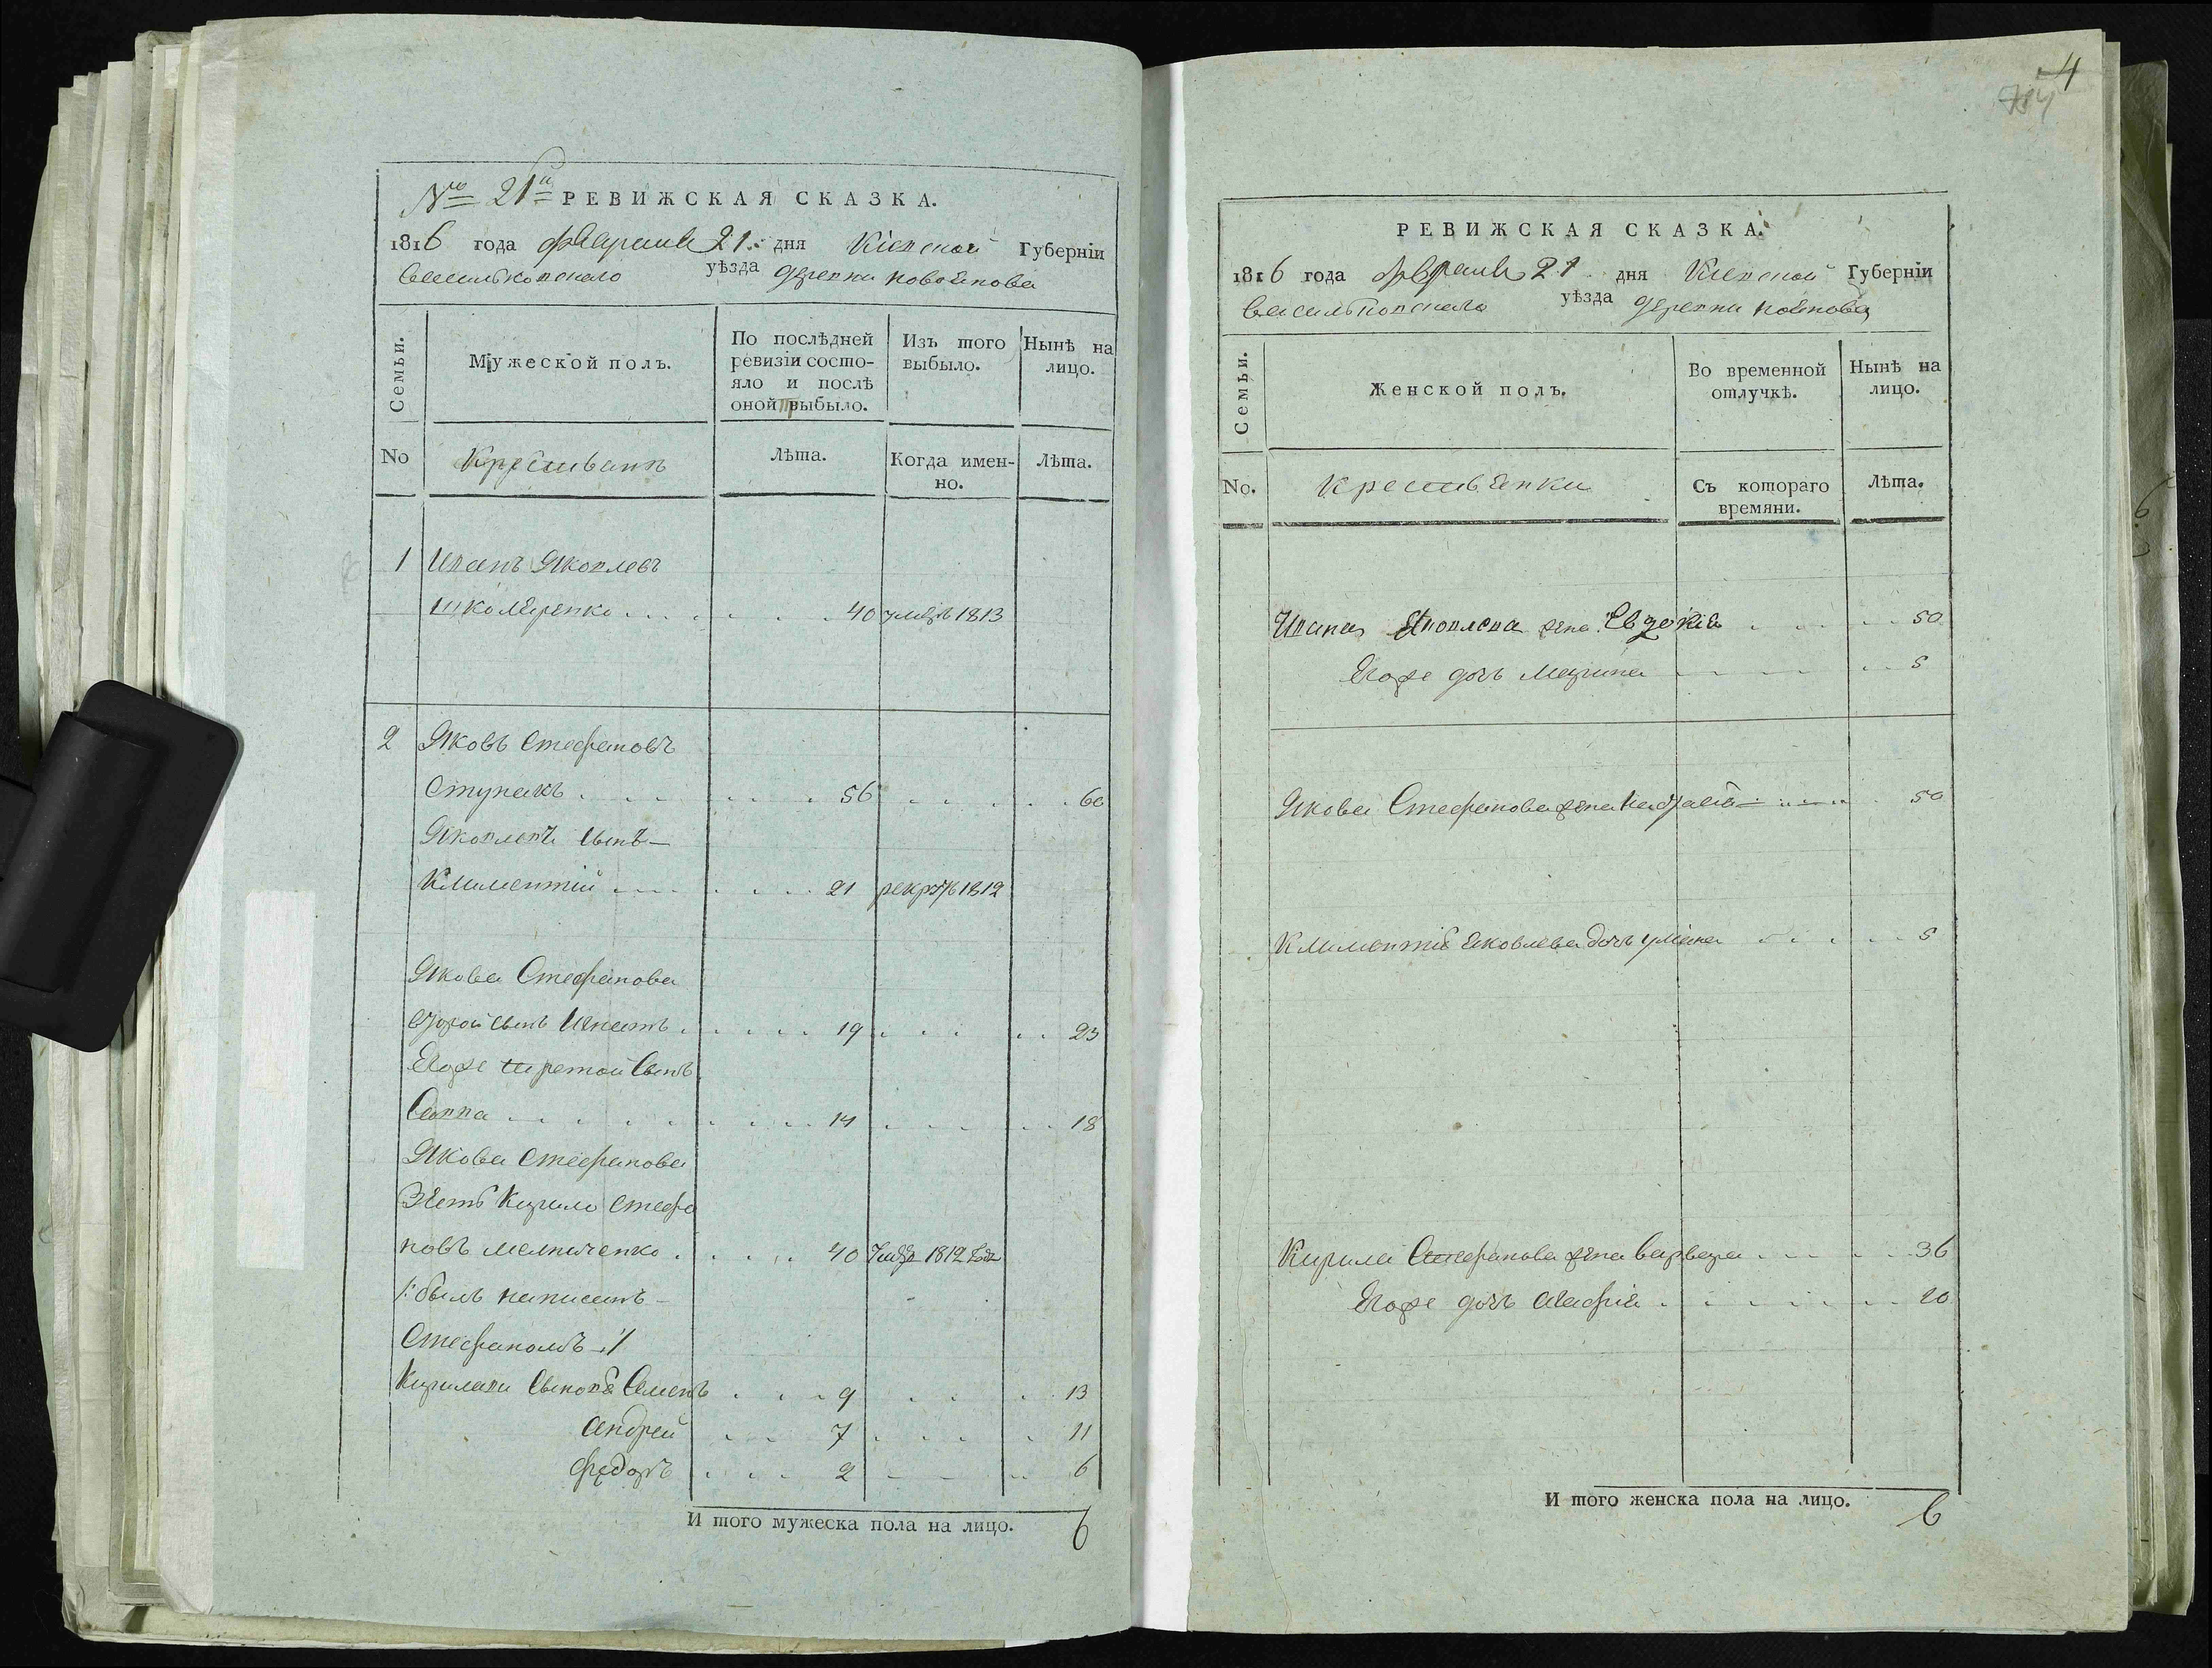 № 21й РЕВИЖСКАЯ СКАЗКА.
1816 года февраля 21. дня Кіевской Губерніи
Васильковского уѣзда деревни
Семьи.
Мужеской полъ.
По послѣдней ревизіи состояло и послѣ оной прибыло.
Изъ того выбыло.
Нынѣ на лицо.
No
Крестьянъ
Лѣта.
Когда именно.
Лѣта.
1 Иванъ Яковлевъ
Школяренко . . . . . . 40 умеръ 1813
2 Яковъ Стефановъ
Ступакъ . . . . . . 56 . . . . . 60
Яковлевъ сынъ —
Климентій . . . . . . 21 рекрутъ 1812
Якова Стефанова
второй сынъ Игнатъ . . . . . 19 . . . . . 23
Егоже третой сынъ
Савва . . . . . . 14 . . . . . 18
Якова Стефанова
Зять Кирило Стефа
новъ Мельниченко . . . . 40 1812
/: былъ написанъ —
Стефаномъ :/
Кириловы сыновья Семенъ . . . 9 . . . 13
Андрей . . . 7 . . . . 11
Федоръ . . . 2 . . . 6
И того мужеска пола на лицо. 6
4
РЕВИЖСКАЯ СКАЗКА.
1816 года февраля 21 . дня Кіевской Губерніи
Васильковского уѣзда деревни
Семьи.
Женской полъ.
Во временной отлучкѣ.
Нынѣ на лицо.
No.
Крестьянки
Съ котораго времяни.
Лѣта.
Ивана Яковлева жена Евдокія . . . . . 50
Егоже дочь Марина . . . . . 5
Якова Стефанова жена . . . . 50
Климентія Яковлева дочь Уліана . . . . . 5
Кирила Стефанова жена Варвара . . . . . 36
Егоже дочь Агафія . . . . . 20
И того женска пола на лицо. 6